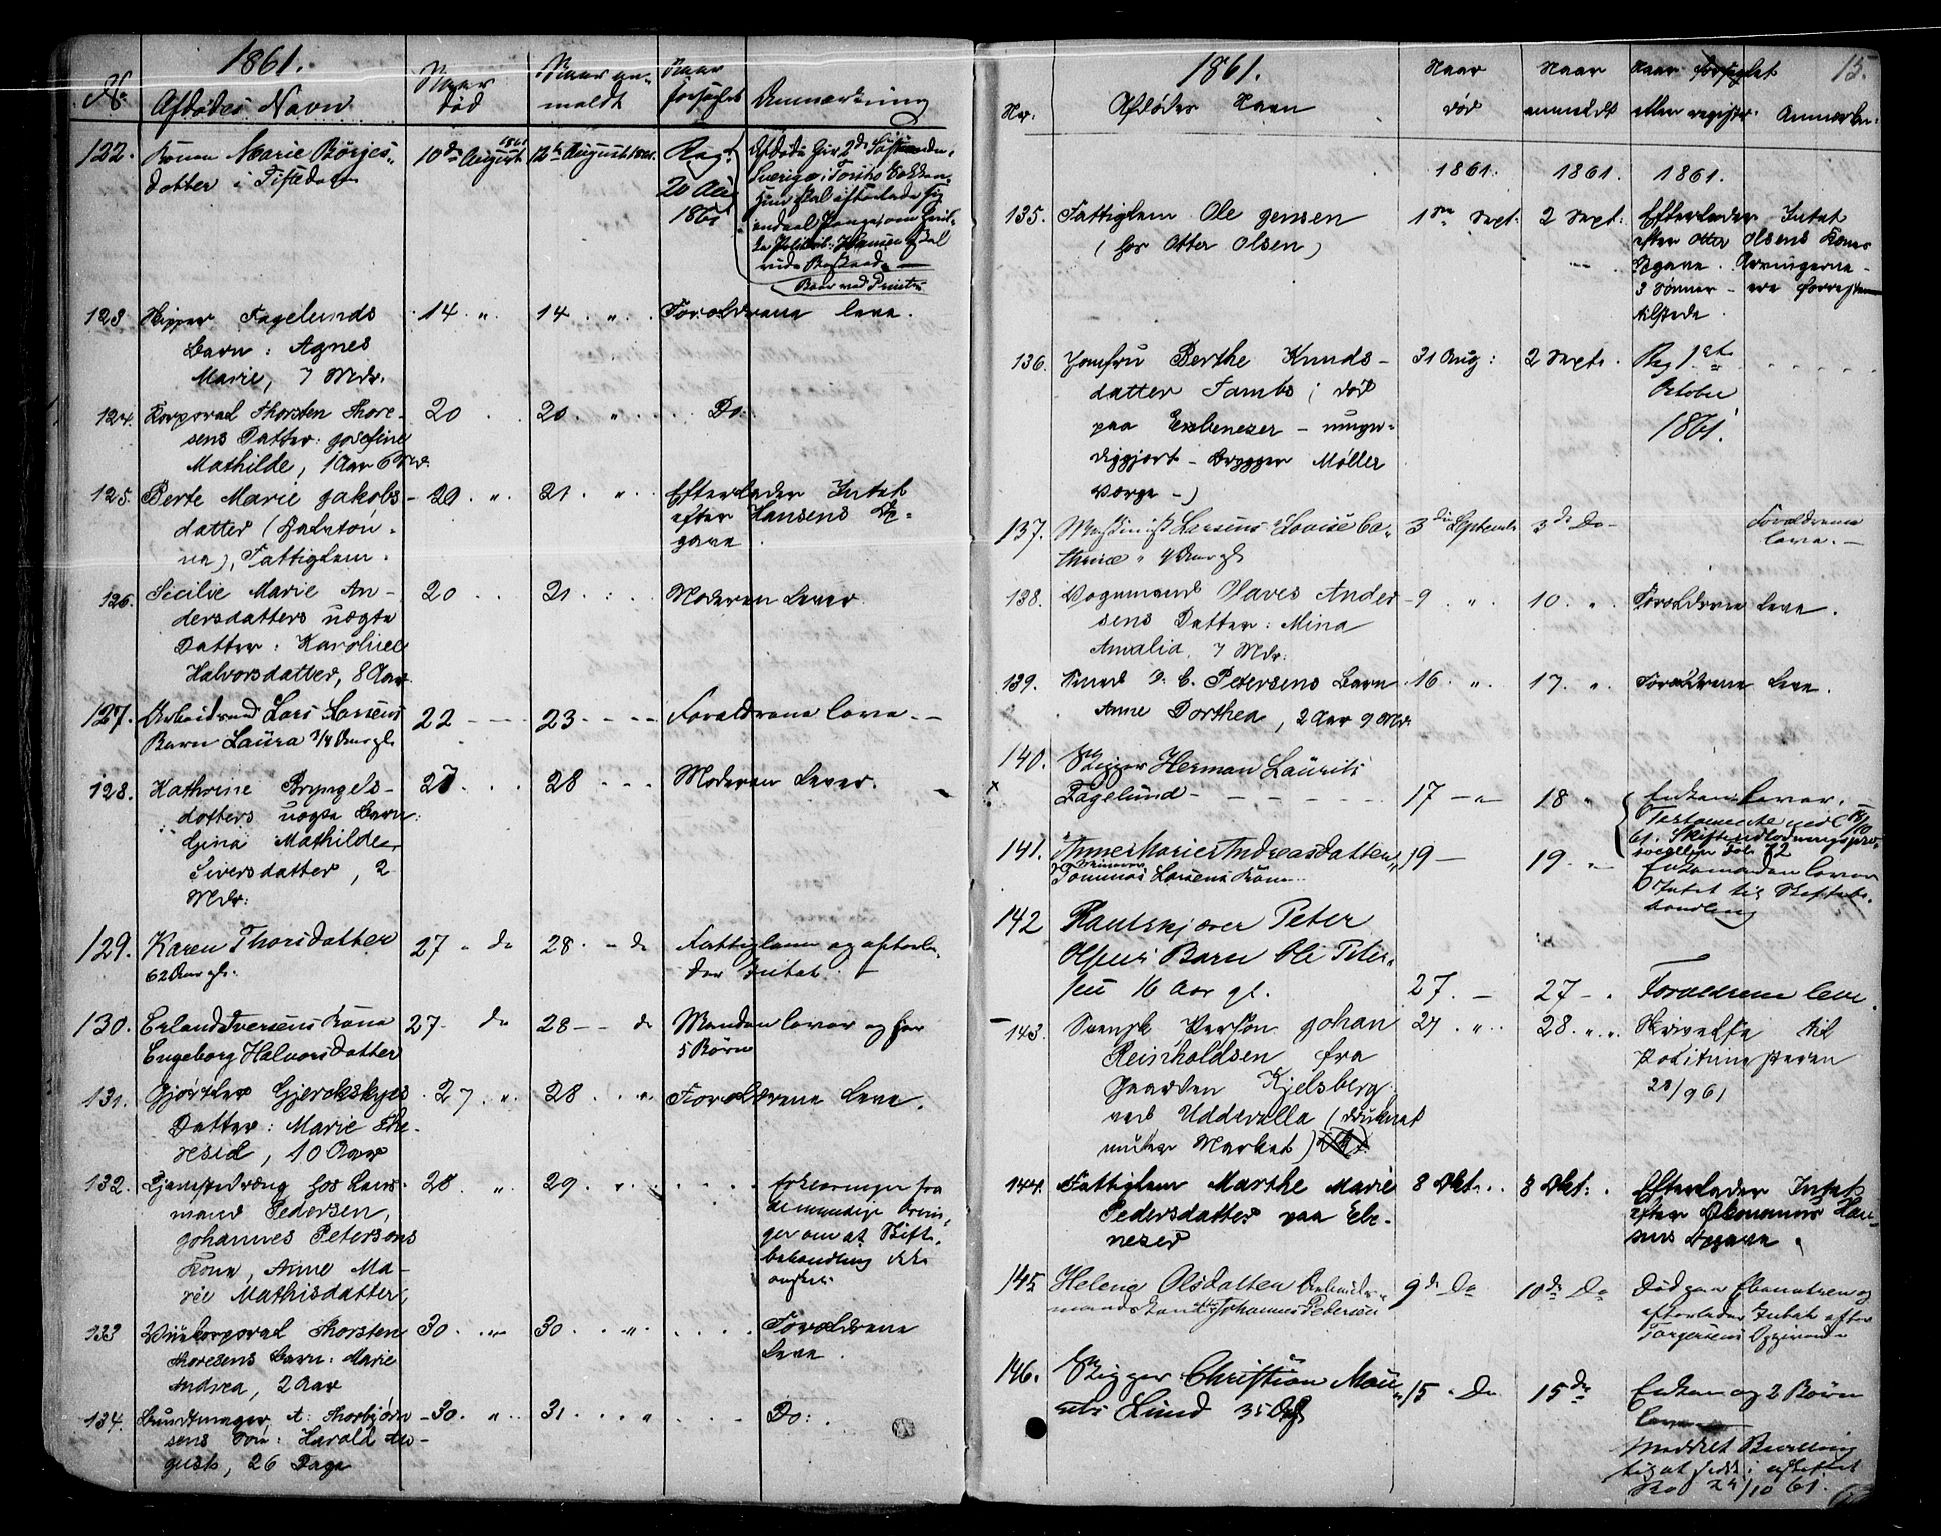 1861.
No
Afdødes Navn
Naar død
Naar anmeldt
Naar forseglet
Anmærkning
122. Konen Marie Børjes-
datter i Tistedalen
10de August 1861
12te August 1861.
Reg.
20 Aug
1861
123. Skipper Fagelunds
Barn: Agnes
Marie, 7 Mdr.
14 „
14 „
Forældrene leve.
124. Korporal Thorsten Thore-
sens Datter: Josefine
Mathilde, 1 Aar 6 Mdr.
20
20 „
Do:
125. Berte Marie Jakobs-
datter
Fattiglem.
20 „
21 „
Efterlader Intet
efter Hansens Op-
gave.
126. Sicilie Marie An-
dersdatters uægte
Datter: Karoline
Halvorsdatter, 8 Aar
20
21
Moderen lever.
127. Arbeidsmd Lars Larsens
Barn Laura 3/4 Aar gl.
22
23
Forældrene leve.
128. Kathrine Bryngels-
datters uægte Barn:
Gina Mathilde
Siversdatter, 2
Mdr:
27
28
Moderen lever.
129. Karen Thorsdatter
62 Aar gl.
27 „ do
28 - do
Fattiglem og efterla-
der Intet.
130. Erland Iversens Kone
Engeborg Halvorsdatter
27 do
28 do
Manden lever og har
5 Børn
131. Gjørtler Gjerckskjes
Datter: Marie The-
resie, 10 Aar
27 „
28 „
Forældrene leve.
132. Tjenestedreng hos Lens-
mand Pedersen,
Johannes Petersens
Kone, Anne Ma-
rie Mathisdatter,
28 „
29 „
Erklæringer fra
de myndige Arvin-
ger om at Skifte-
behandling ikke
ønskes.
133 Vicekorporal Thorsten
Thoresens Barn: Marie
Andrea, 2 Aar
30 „
30 „
Forældrene
leve.
134. Buntmager A: Thorbjørn-
sens Søn: Harald Au-
gust, 26 Dage
30 „
31 „
Do:
1861.
15.
Nr.
Afdødes Navn
Naar
død
Naar
anmeldt
Naar forseglet
eller registr.
Anmærkn:
1861.
1861.
1861.
135. Fattiglem Ole Jensen
(hos Otter Olsen)
1ste Sept:
2 Sept:
Efterlader Intet
efter Otter Olsens Kones
Opgave. Arvingerne -
3 Sønner - ere
tilstede.
136. Jomfru Berthe Knuds-
datter Tambs; død
paa Ebenezer - umyn-
diggjort - Brygger Møller
Værge -)
31 Aug:
2 Sept.
Reg 1ste
October
1861.
137. Maskinist Larsens Lovise Ca-
thrine „ 4 Aar gl
3die September
3de Do
Forældrene
leve.
138. Vognmand Olaves Ander-
sens Datter: Mina
Amalia, 7 Mdr:
9 „
10. „
Forældrene leve.
139. Smed D. C. Petersens Barn
Anne Dorthea, 2 Aar 9 Mdr
16. „
17. „
Forældrene leve.
140. Skipper Herman Laurits
Fagelund
17
18 „
Enken lever.
141. Anne Marie Andreasdatter,
Larsens Kone
19
19.
Enkemanden lever
Intet til Skiftebe-
handling
142 Rantskjærer Peter
Olsens Barn Ole Peter-
sen 16 Aar gl.
27.
27 -
Forældrene leve.
143. Svensk Person Johan
Reinholdsen fra
Gaarden Kjelsberg
ved Uddevalla (druknet
under Marked)
27. „
28. „
Skrivelse til
Politimesteren
28/9 61
144. Fattiglem Marthe Marie
Pedersdatter paa Ebe-
nezer
8 Okt:
8 Okt:
Efterlader Intet
efter Økonomus Han-
sens Opgave.
145 Helene Olsdatter Arbeids-
mands Johannes Petersen
9de Do
10de Do
Død paa Ebenetzer og
efterlader Intet efter
Torgersens Opgivende
146. Skipper Christian Mou-
rits Lund 35 Aar
15. Do
15de
Enken og 2 Børn
leve
Meddelt Bevilling
til at sidde i uskiftet
Bo 24/10 61.